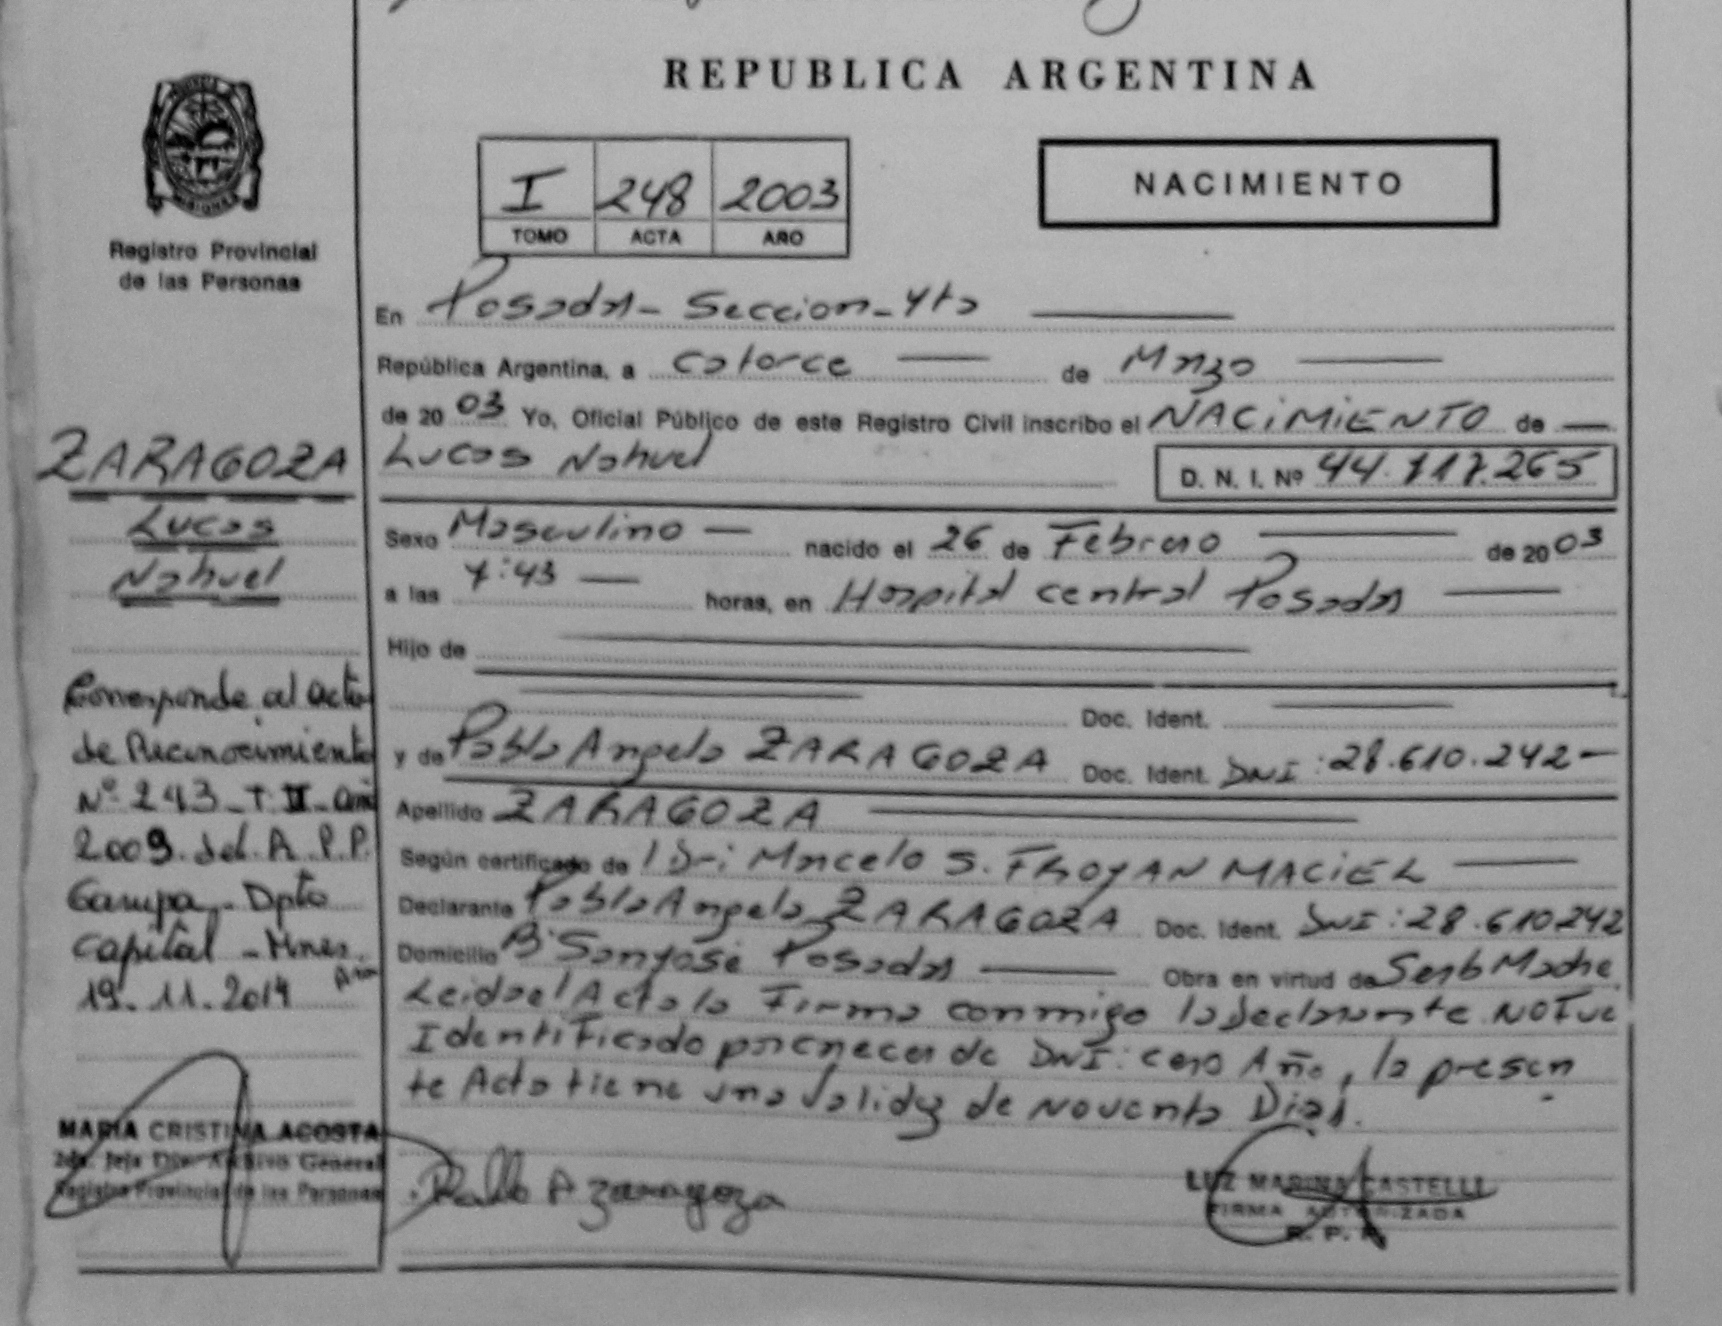 REPUBLICA ARGENTINA
I 248 2003
TOMO ACTA AÑO
NACIMIENTO
Registro Provincial
de las Personas
ZARAGOZA
Lucas
Nahuel
Corresponde al acta
de Reconocimiento
Nº 243 - T II - año
2009 del A.P.P.
Garupa - Dpto
Capital - Mnes.
19.11.2014
MARIA CRISTINA ACOSTA
2da. Jefa Div. Archivo General
Registro Provincial de las Personas
En Posadas - Seccion - 4ta
República Argentina, a Catorce de Marzo
de 2003 Yo, Oficial Público de este Registro Civil inscribo el NACiMiENTO de
Lucas Nahuel D. N. I. Nº 44.117.265
Sexo Masculino nacido el 26 de Febrero de 2003
a las 4:43 horas, en Hospital central Posadas
Hijo de
Doc. Ident.
y de Pablo Angelo ZARAGOZA Doc. Ident. DNI: 28.610.242
Apellido ZARAGOZA
Según certificado de Marcelo S. FROYAN MACiEL
Declarante Pablo Angelo ZARAGOZA Doc. Ident. DNI: 28.610242
Domicilio Bº San José Posadas Obra en virtud de Madre
Leida el Acta la Firma conmigo la declarante NO Fue
Identificado por carecer de DNI: cero Año, la presen
te Acta tiene una validez de Noventa Dias.
Pablo A Zaragoza
LUZ MARINA CASTELLI
FIRMA AUTORIZADA
R. P. P.